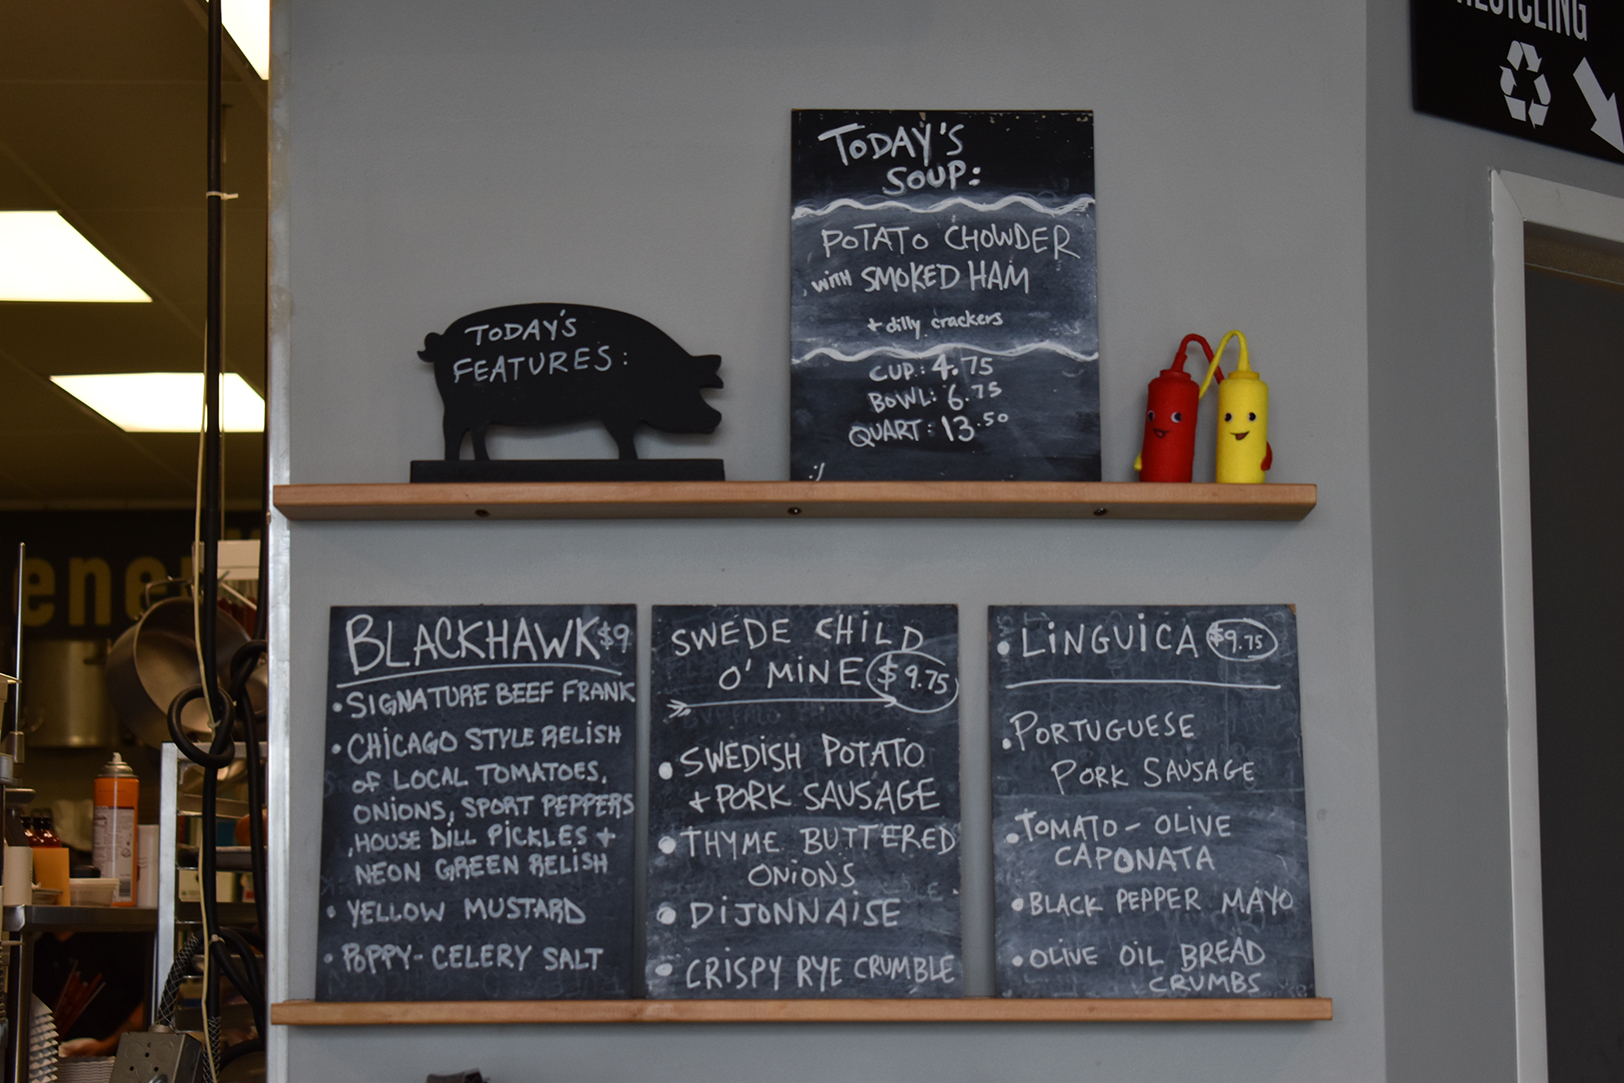 RECYCLING
TODAY'S
SOUP:
POTATO CHOWDER
with SMOKED HAM
+ dilly crackers
CUP: 4.75
BOWL: 6.75
QUART: 13.50
:/
TODAY'S
FEATURES:
BLACKHAWK $9
• SIGNATURE BEEF FRANK
• CHICAGO STYLE RELISH
OF LOCAL TOMATOES,
ONIONS, SPORT PEPPERS
, HOUSE DILL PICKLES +
NEON GREEN RELISH
• YELLOW MUSTARD
• POPPY-CELERY SALT
SWEDE CHILD
O' MINE $9.75
• SWEDISH POTATO
+ PORK SAUSAGE
• THYME BUTTERED
ONIONS
• DIJONNAISE
• CRISPY RYE CRUMBLE
• LINGUICA $9.75
• PORTUGUESE
PORK SAUSAGE
• TOMATO-OLIVE
CAPONATA
• BLACK PEPPER MAYO
• OLIVE OIL BREAD
CRUMBS